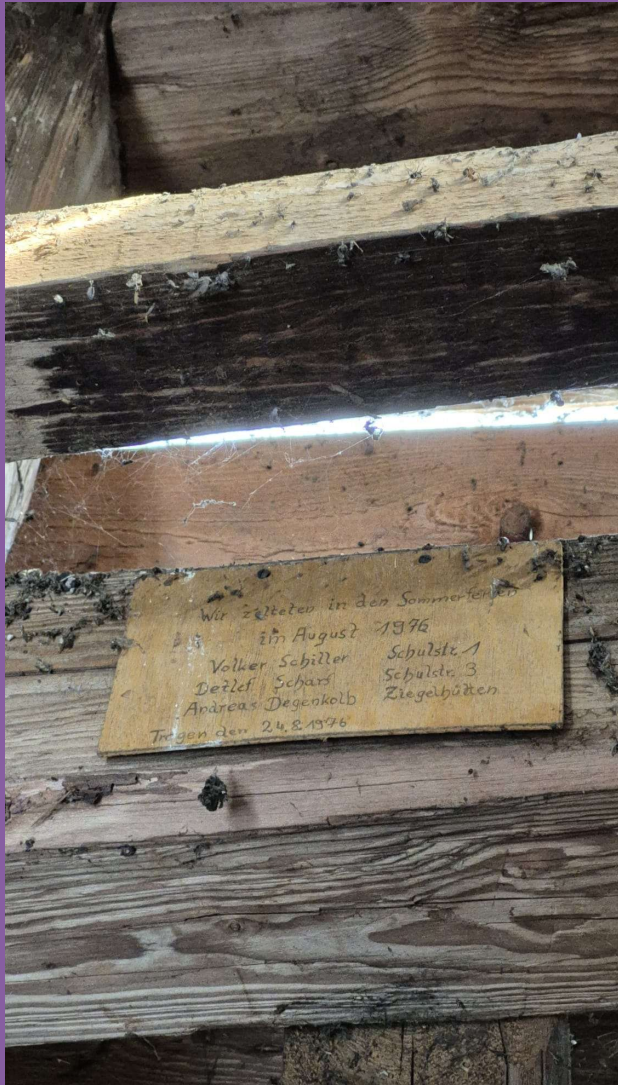 Wir zelteten in den Sommerferien
im August 1976
Volker Schiller Schulstr. 1
Detlef Schars Schulstr. 3
Andreas Degenkolb Ziegelhütten
den 24.8.1976